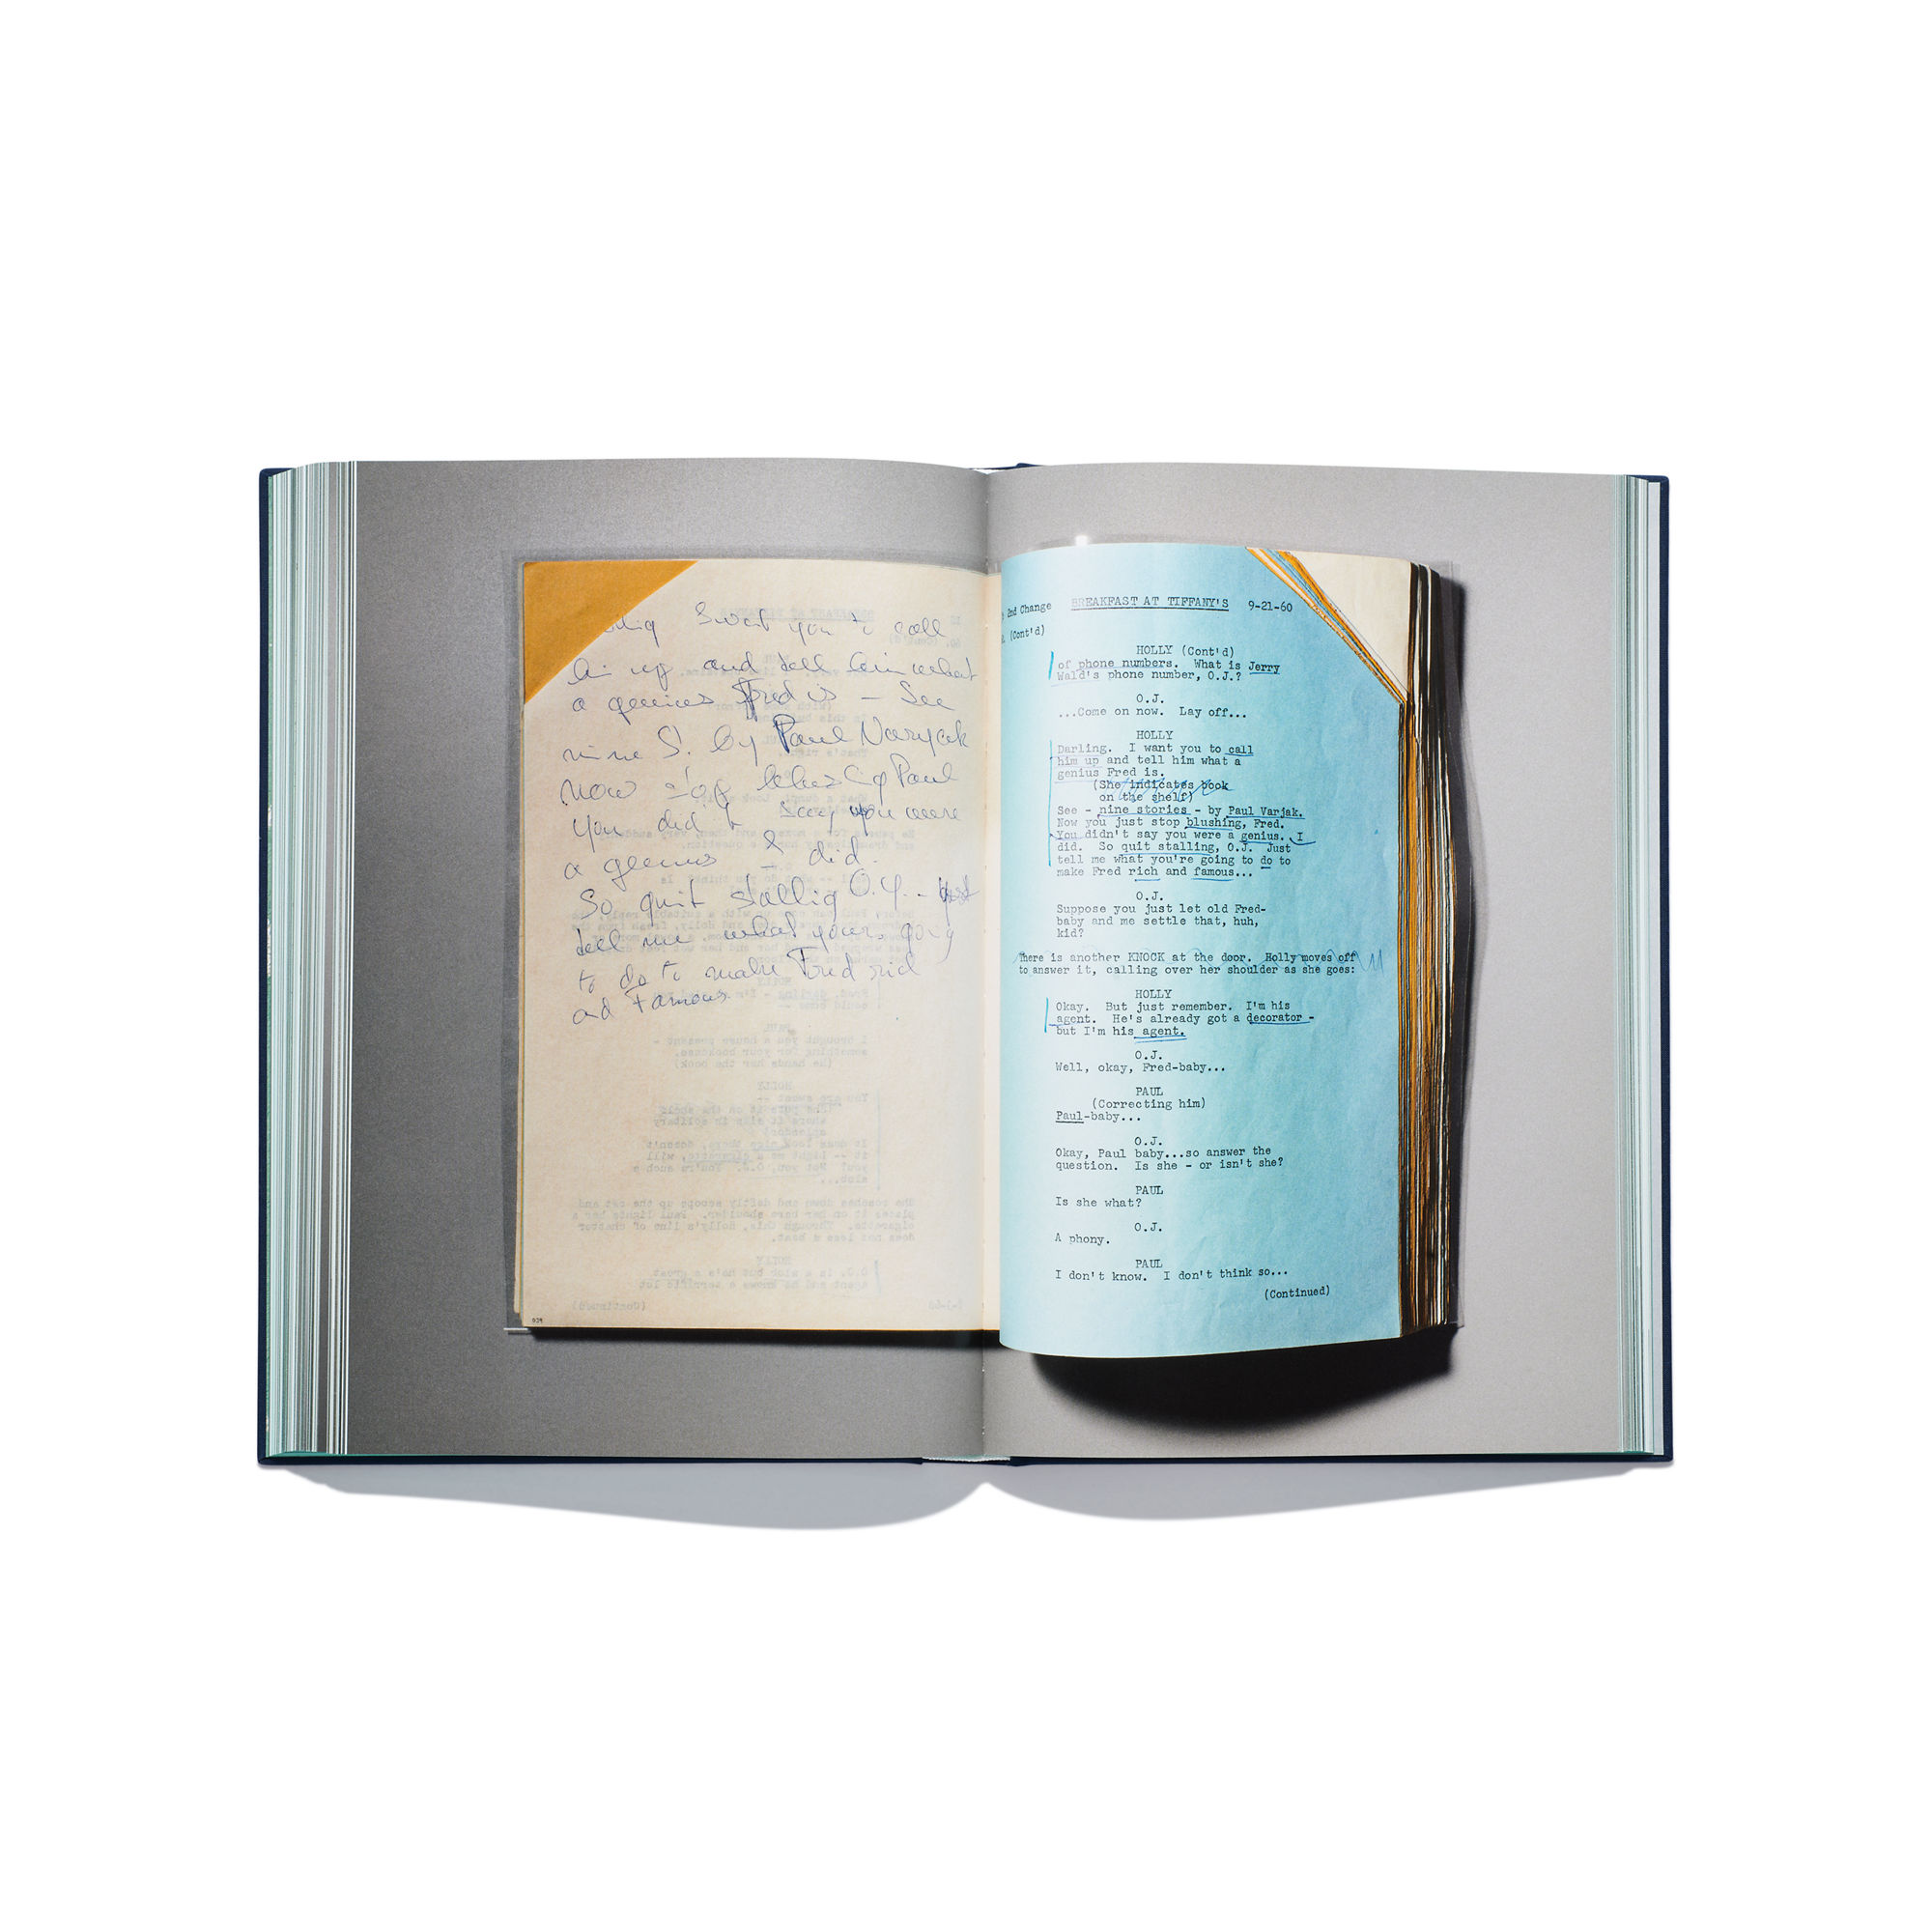 I want you to call
him up and tell him what
a genius Fred is — See
nine S. by Paul Varjak
now stop blushing Paul
You did t say you were
a genius I did.
So quit stallig O.J. -- just
tell me what your going
to do to make Fred rich
and Famous
2nd Change BREAKFAST AT TIFFANY'S 9-21-60
(Cont'd)
HOLLY (Cont'd)
of phone numbers. What is Jerry
Wald's phone number, O.J.?
O.J.
...Come on now. Lay off...
HOLLY
Darling. I want you to call
him up and tell him what a
genius Fred is.
(She indicates book
on the shelf)
See - nine stories - by Paul Varjak.
Now you just stop blushing, Fred.
You didn't say you were a genius. I
did. So quit stalling, O.J. Just
tell me what you're going to do to
make Fred rich and famous...
O.J.
Suppose you just let old Fred-
baby and me settle that, huh,
kid?
There is another KNOCK at the door. Holly moves off
to answer it, calling over her shoulder as she goes:
HOLLY
Okay. But just remember. I'm his
agent. He's already got a decorator -
but I'm his agent.
O.J.
Well, okay, Fred-baby...
PAUL
(Correcting him)
Paul-baby...
O.J.
Okay, Paul baby...so answer the
question. Is she - or isn't she?
PAUL
Is she what?
O.J.
A phony.
PAUL
I don't know. I don't think so...
(Continued)